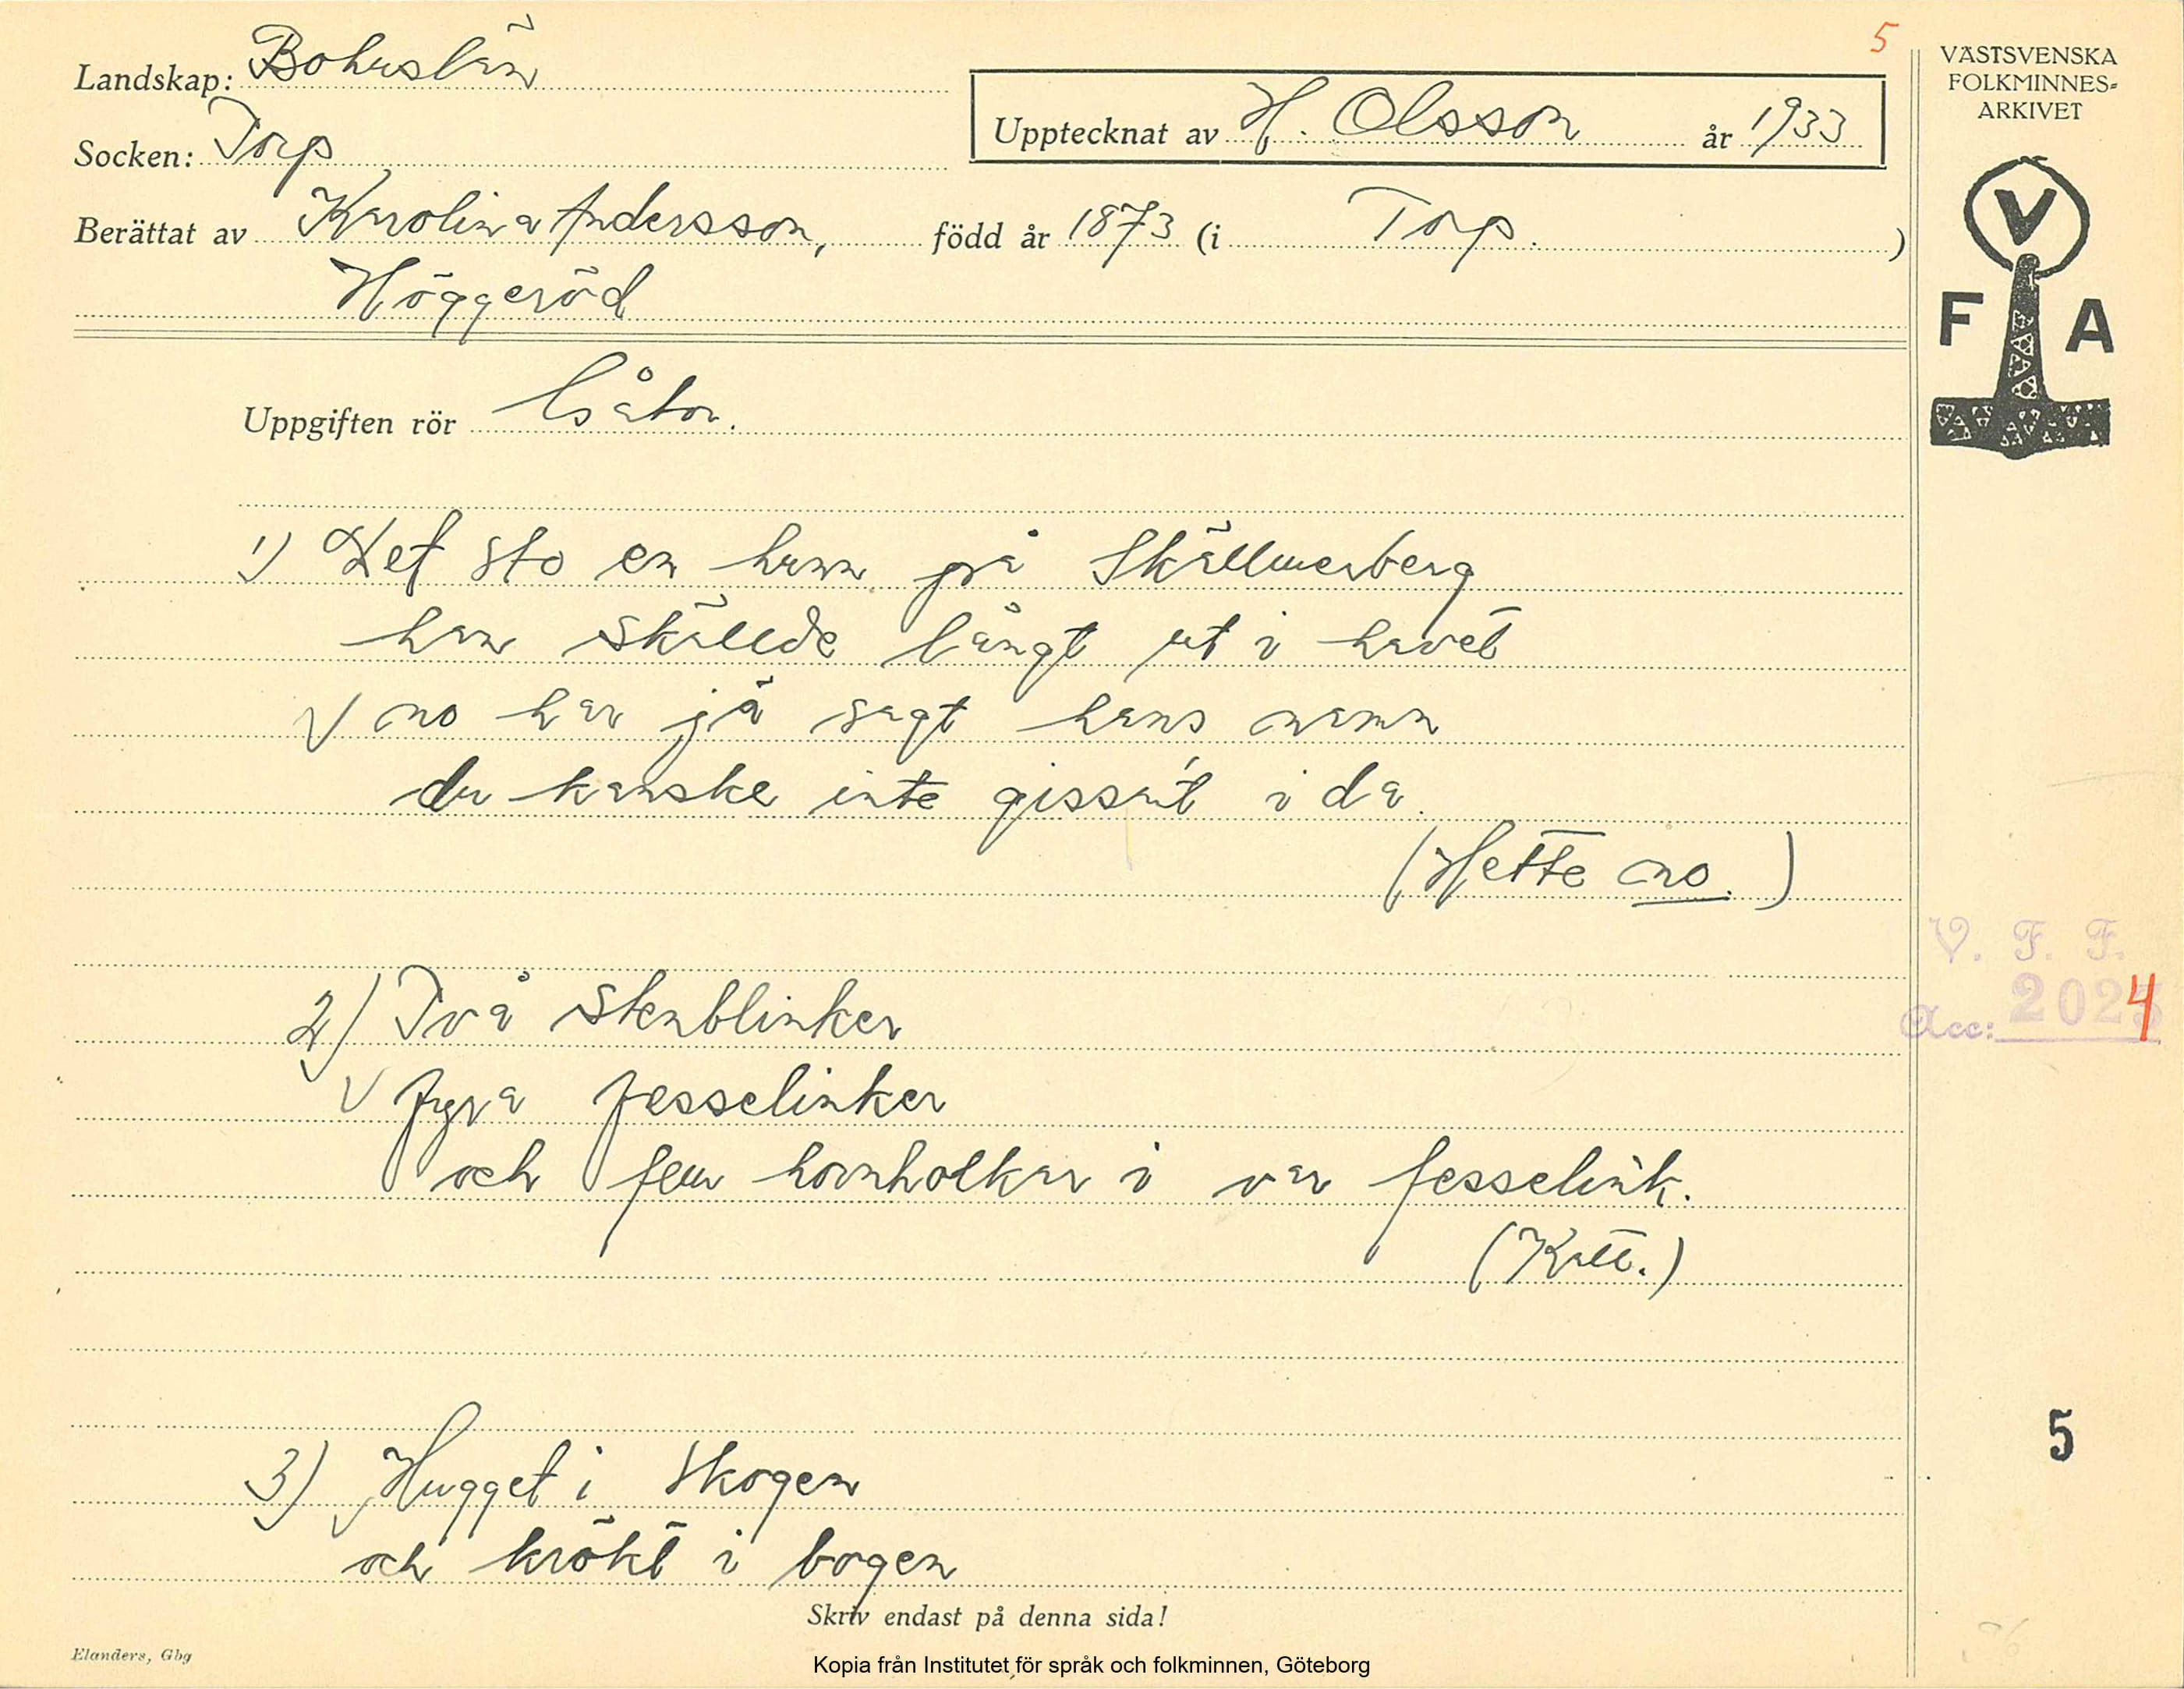 5
Landskap: Bohuslän
Socken: Torp
Upptecknat av H. Olsson år 1933
Berättat av Karolina Andersson, född år 1873 (i Torp.)
Höggeröd
Uppgiften rör Gåtor.
1) Det sto en hunn på Skällmerberg
han skällde långt ut i havet
no har jä sagt hans namn
du kanske inte gissa't i da.
(Hette no.)
2) Två stenblinker
fyra fesselinker
och fem hornholkar i var fesselink.
(Katt.)
3) Hugget i skogen
och krökt i bogen
Skriv endast på denna sida!
Elanders, Gbg
Kopia från Institutet för språk och folkminnen, Göteborg
VÄSTSVENSKA
FOLKMINNES-
ARKIVET
V
F A
V. F. F.
Acc: 2024
5